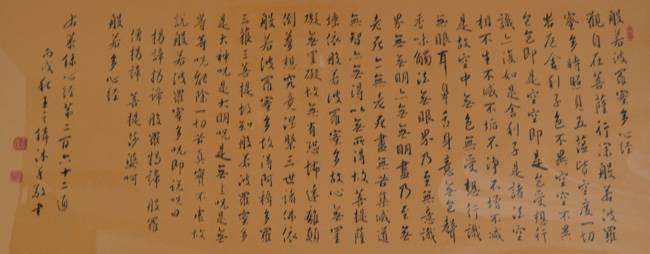 般若波羅蜜多心經
觀自在菩薩行深般若波羅
蜜多時照見五蘊皆空度一切
苦厄舍利子色不異空空不異
色色即是空空即是色受想行
識亦復如是舍利子是諸法空
相不生不滅不垢不淨不增不減
是故空中無色無受想行識
無眼耳鼻舌身意無色聲
香味觸法無眼界乃至無意識
界無無明亦無無明盡乃至無
老死亦無老死盡無苦集滅道
無智亦無得以無所得故菩提薩
埵依般若波羅蜜多故心無罣
礙無罣礙故無有恐怖遠離顛
倒夢想究竟涅槃三世諸佛依
般若波羅蜜多故得阿耨多羅
三藐三菩提故知般若波羅蜜多
是大神咒是大明咒是無上咒是無
等等咒能除一切苦真實不虛故
說般若波羅蜜多咒即說咒曰
揭諦揭諦 般羅揭諦 般羅
僧揭諦 菩提莎婆呵
般若多心經
心經第二百六十二遍
丙戌秋王